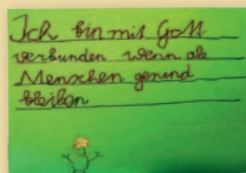 Ich bin mit Gott
verbunden wenn ale
Menschen gesund
bleiben